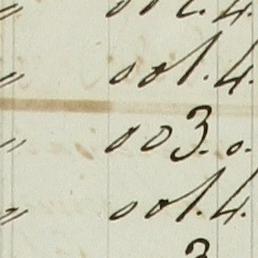 " 001.4.
" 003.0.
" 001.4.